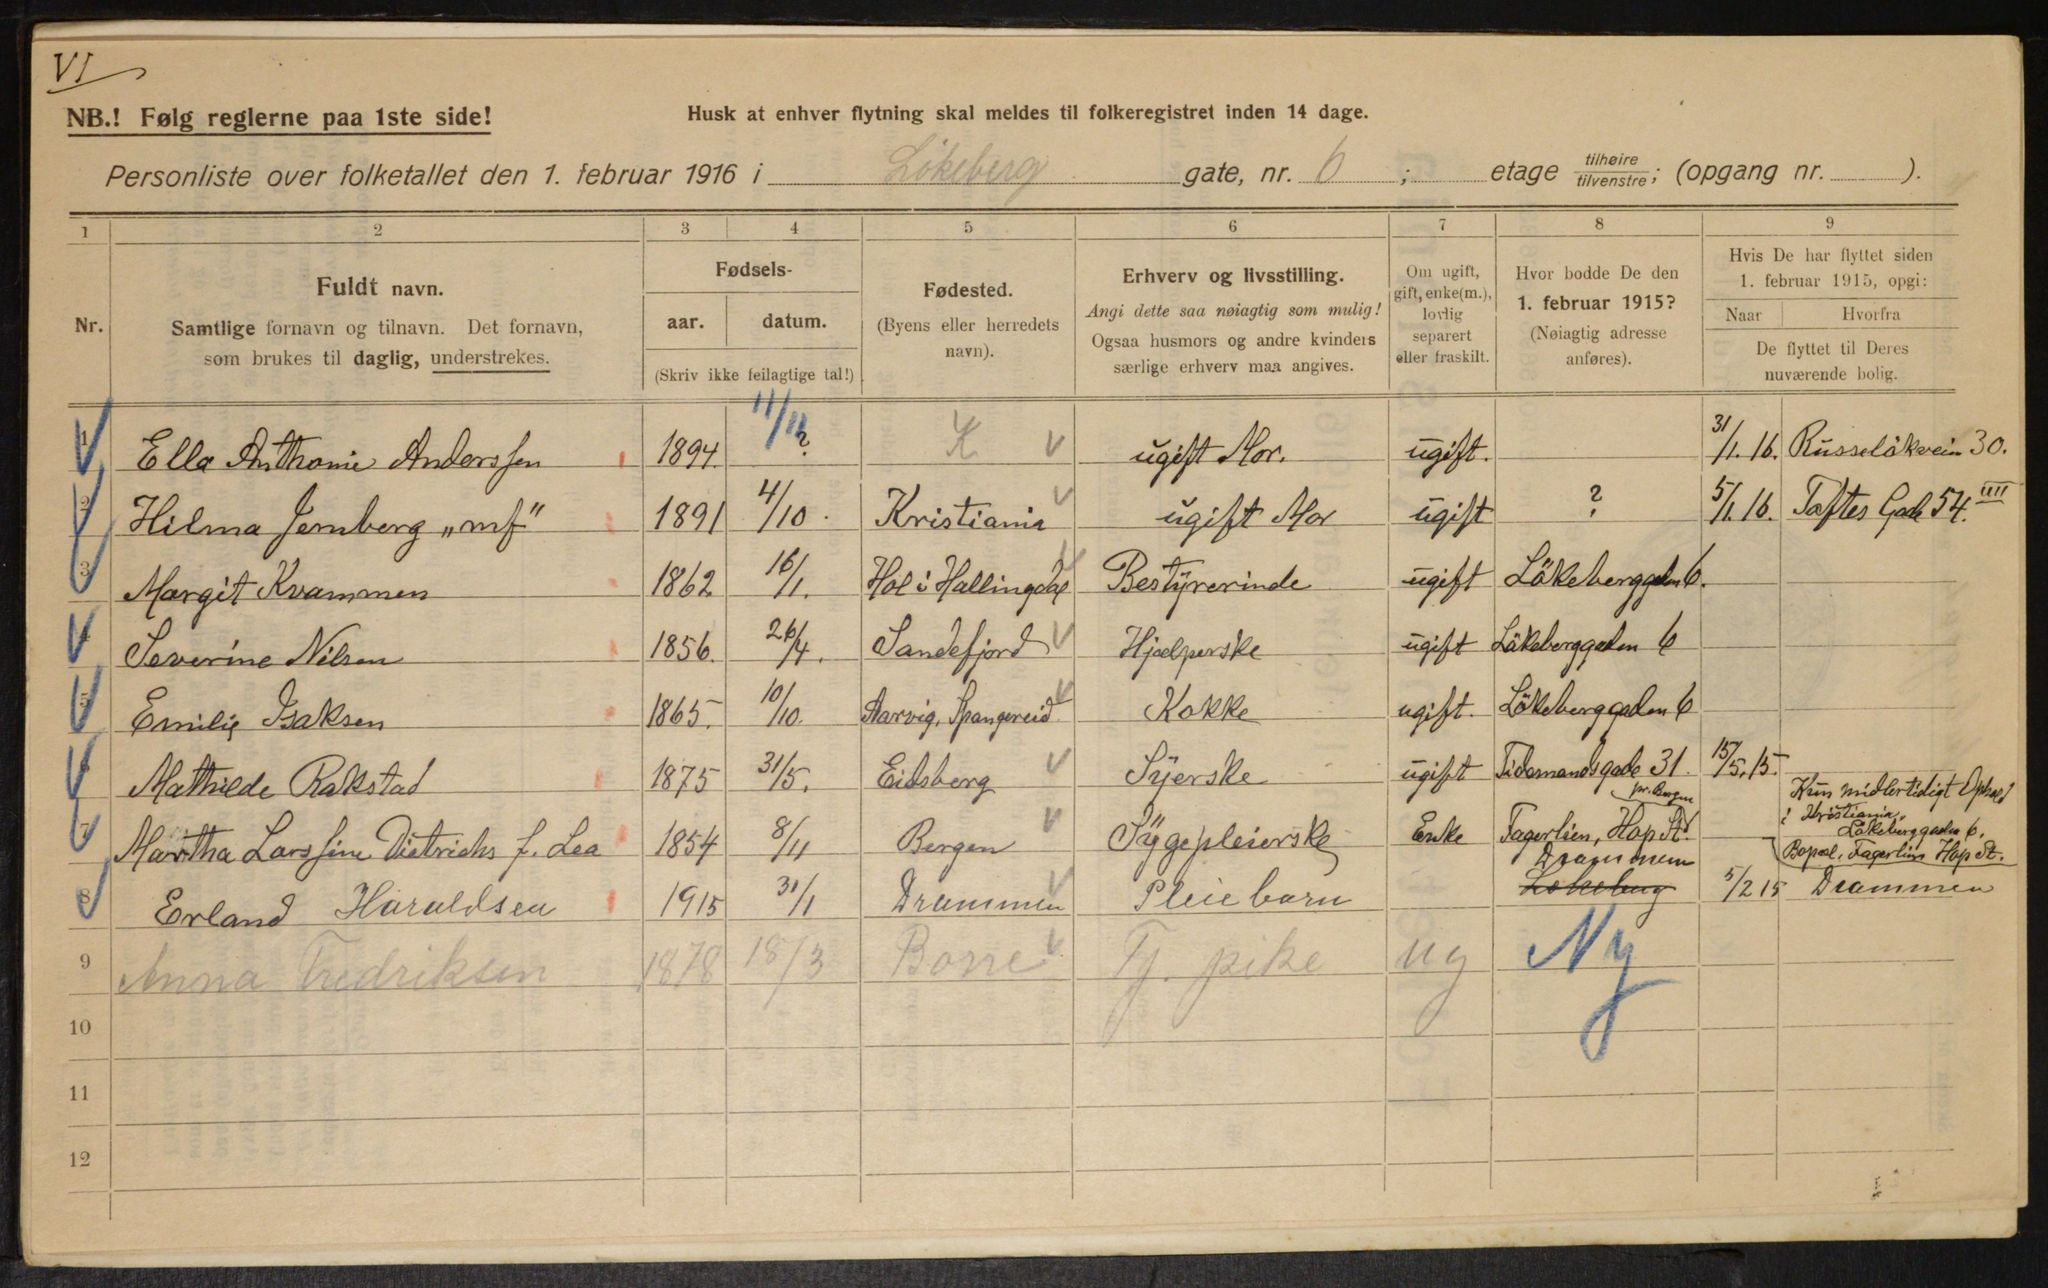 VI
NB.! Følg reglerne paa 1ste side!
Husk at enhver flytning skal meldes til folkeregistret inden 14 dage.
Personliste over folketallet den 1. februar 1916 i Lökeberg gate, nr. 6 ; etage tilhøire/tilvenstre; (opgang nr. ).
1 2 3 4 5 6 7 8 9
Nr.
Fuldt navn.
Samtlige fornavn og tilnavn. Det fornavn,
som brukes til daglig, understrekes.
Fødsels-
aar. datum.
(Skriv ikke feilagtige tal!)
Fødested.
(Byens eller herredets
navn).
Erhverv og livsstilling.
Angi dette saa nøiagtig som mulig!
Ogsaa husmors og andre kvinders
særlige erhverv maa angives.
Om ugift,
gift, enke(m.),
lovlig
separert
eller fraskilt.
Hvor bodde De den
1. februar 1915?
(Nøiagtig adresse
anføres).
Hvis De har flyttet siden
1. februar 1915, opgi:
Naar Hvorfra
De flyttet til Deres
nuværende bolig.
1 Ella Anthonie Anderssen 1894. 11/11 ? K ugift Mor. ugift. 31/1. 16. Russelökvein 30.
2 Hilma Jernberg „mf" 1891 4/10. Kristiania ugift Mor ugift ? 5/1. 16. Toftes Gade 54. IIII
3 Margit Kvammen 1862 16/1. Hol i Hallingdal Bestyrerinde ugift Lökeberggaden 6.
4 Severine Nilsen 1856. 26/4. Sandefjord Hjælperske ugift Lökeberggaden 6
5 Emilie Isaksen 1865. 10/10. Aarvig, Spangereid Kokke ugift. Lökeberggaden 6
6 Mathilde Rakstad 1875 31/5. Eidsberg Syerske ugift Tidemandsgade 31. 15/5. 15.
7 Martha Larssine Dietrichs f. Lea 1854 8/11 Bergen Sygepleierske Enke Fagerlien, Hop St. pr. Bergen Kun midlertidigt Ophold
i Kristiania,
Lökeberggaden 6.
Bopæl, Fagerlien Hop St.
8 Erland Haraldsen 1915 31/1 Drammen Pleiebarn Drammen Lökeberg 5/2 15 Drammen
9 Anna Fredriksen 1878 18/3 Borre Tj. pike ug Ny
10
11
12